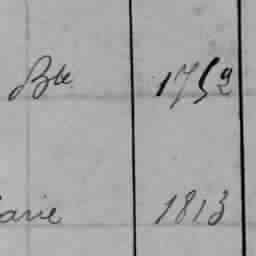 Bte 1752
arie 1813